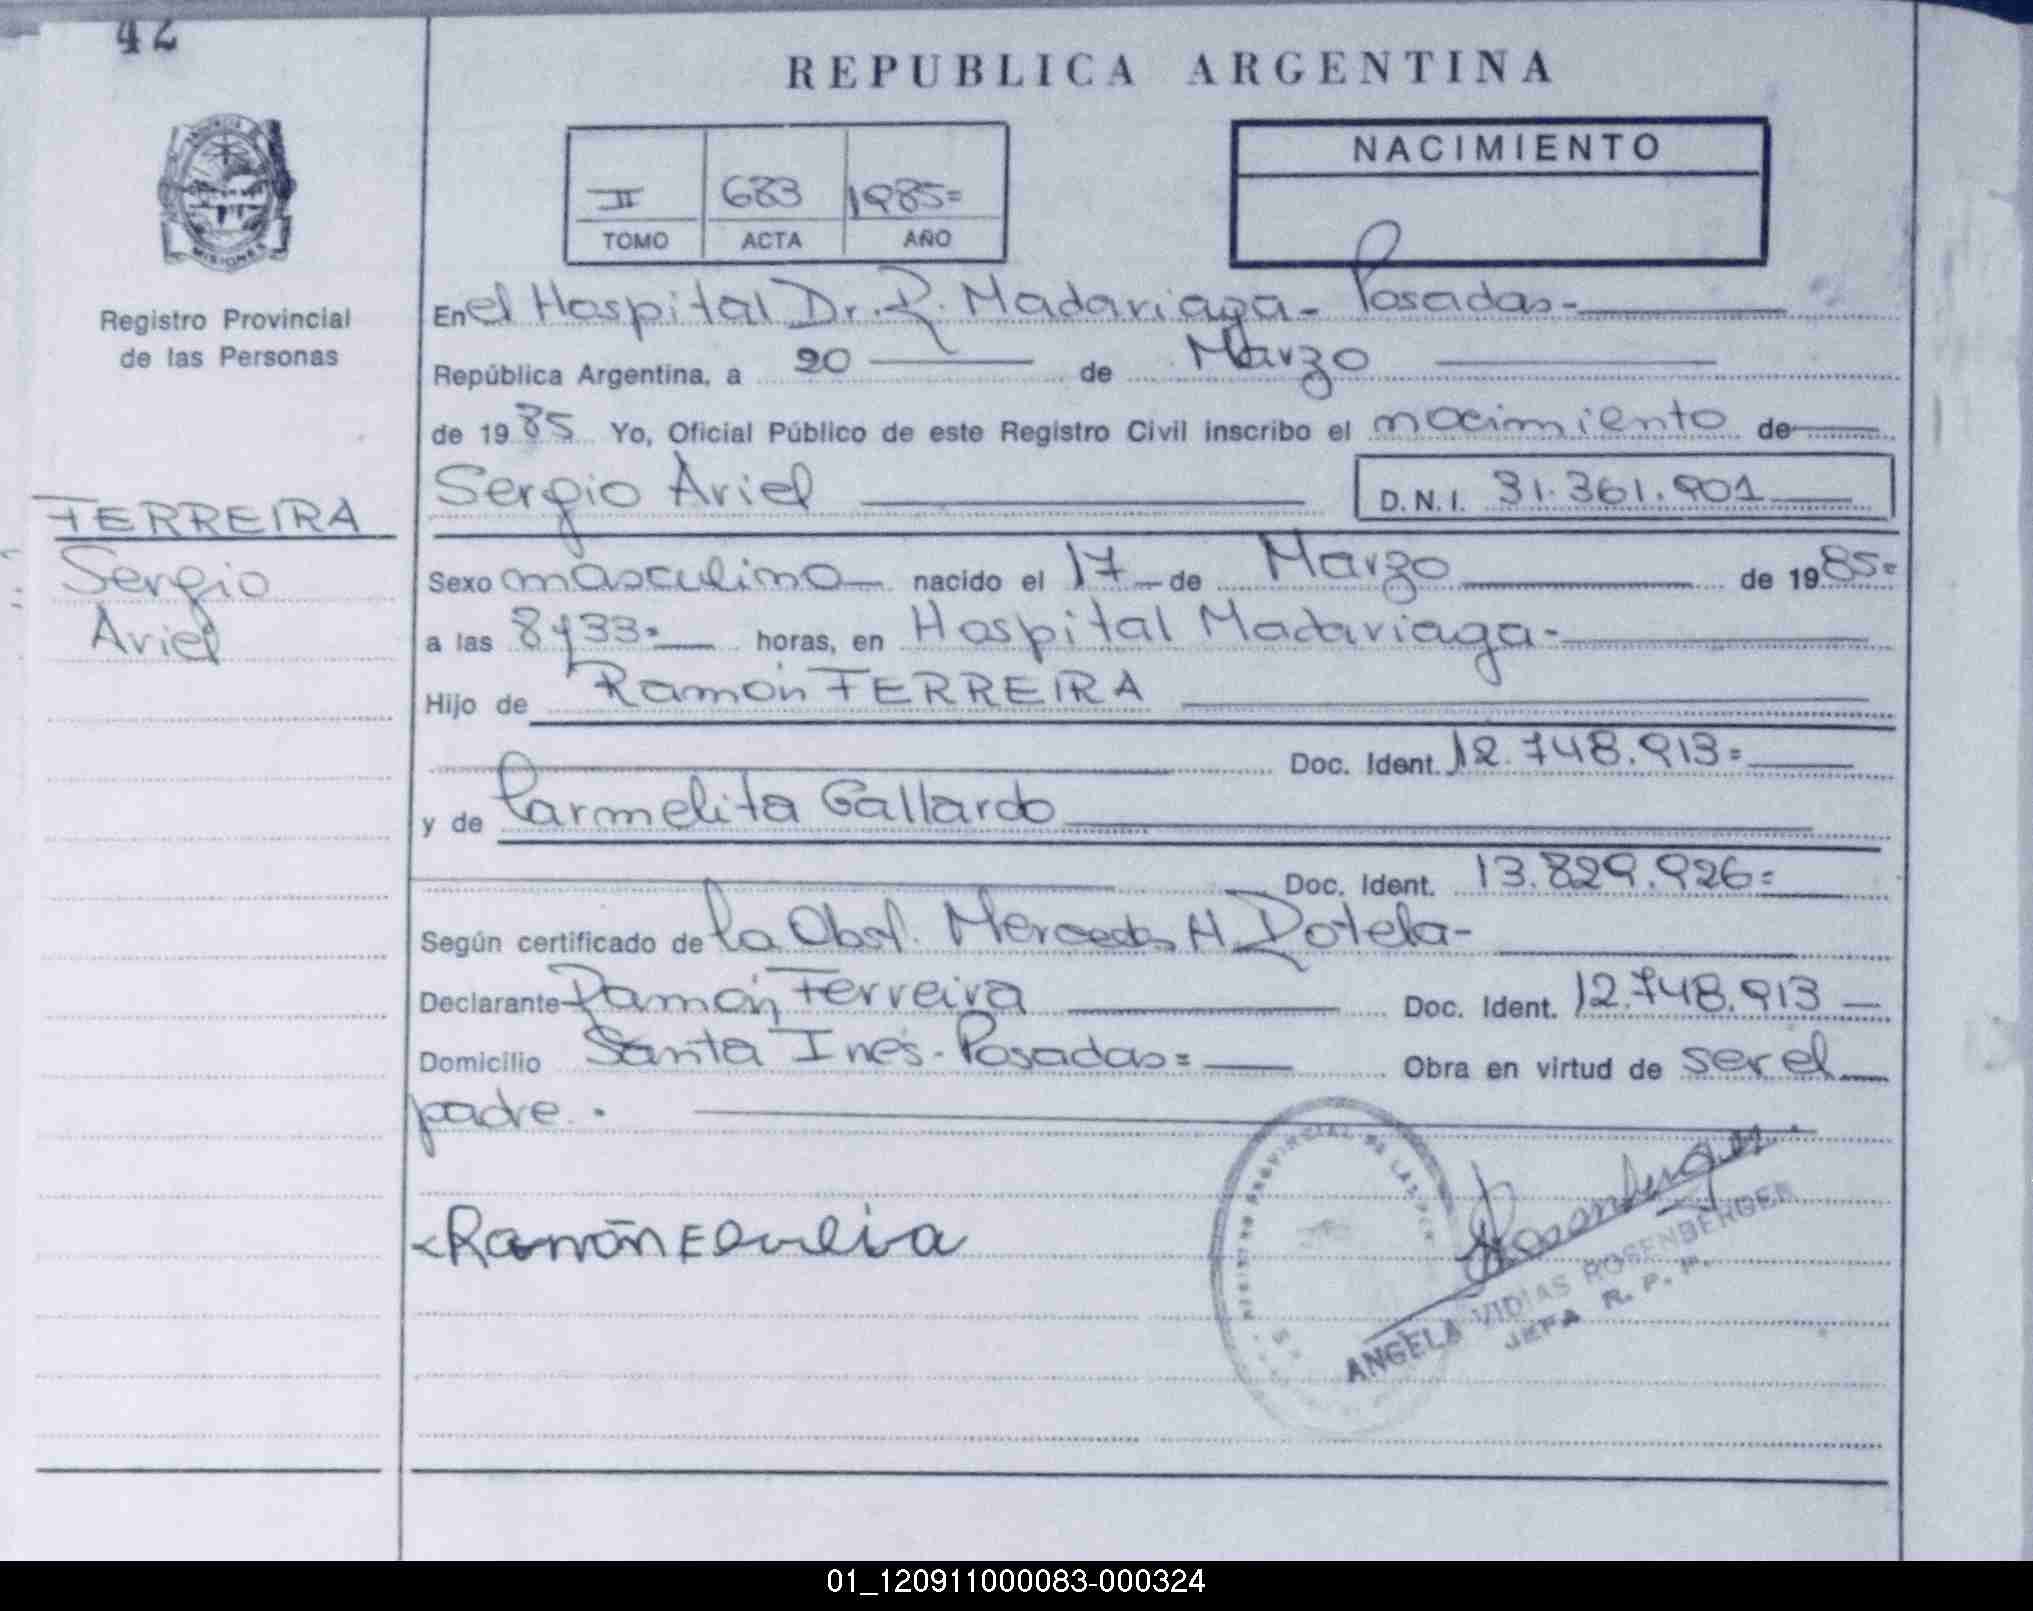 42
REPUBLICA ARGENTINA
II 683 1985=
TOMO ACTA AÑO
NACIMIENTO
MISIONES
Registro Provincial
de las Personas
FERREIRA
Sergio
Ariel
En el Hospital Dr. R. Madariaga - Posadas -
República Argentina, a 20 de Marzo
de 1985 Yo, Oficial Público de este Registro Civil inscribo el nacimiento de
Sergio Ariel D.N.I. 31.361.901
Sexo masculino nacido el 17 de Marzo de 1985=
a las 8y33= horas, en Hospital Madariaga -
Hijo de Ramón FERREIRA
Doc. Ident. 12.748.913=
y de Carmelita Gallardo
Doc. Ident. 13.829.926=
Según certificado de la Obst. Mercedes H. Rotela -
Declarante Ramón Ferreira Doc. Ident. 12.748.913
Domicilio Santa Inés - Posadas = Obra en virtud de ser el
padre.
Ramón
ANGELA VIDIAS ROSENBERGER
JEFA R. P. P.
01_120911000083-000324